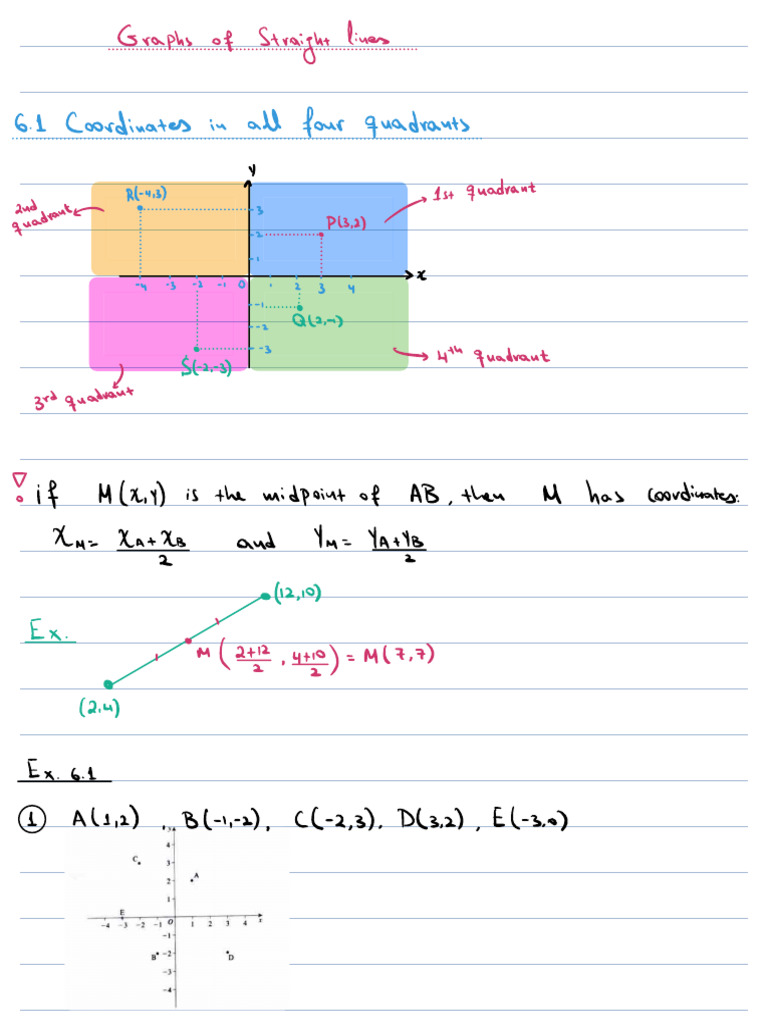 Graphs of Straight lines
6.1 Coordinates in all four quadrants
y
R(-4,3)
1st quadrant
2nd quadrant
3
P(3,2)
2
1
x
-4 -3 -2 -1 0 1 2 3 4
-1
Q(2,-1)
-2
-3
4th quadrant
S(-2,-3)
3rd quadrant
! if M(x,y) is the midpoint of AB, then M has coordinates:
xM = xA+xB/2 and yM = yA+yB/2
(12,10)
Ex.
M(2+12/2, 4+10/2) = M(7,7)
(2,4)
Ex. 6.1
1 A(1,2), B(-1,-2), C(-2,3), D(3,2), E(-3,0)
4
C 3
2 A
1
E
-4 -3 -2 -1 O 1 2 3 4 x
-1
B -2 D
-3
-4